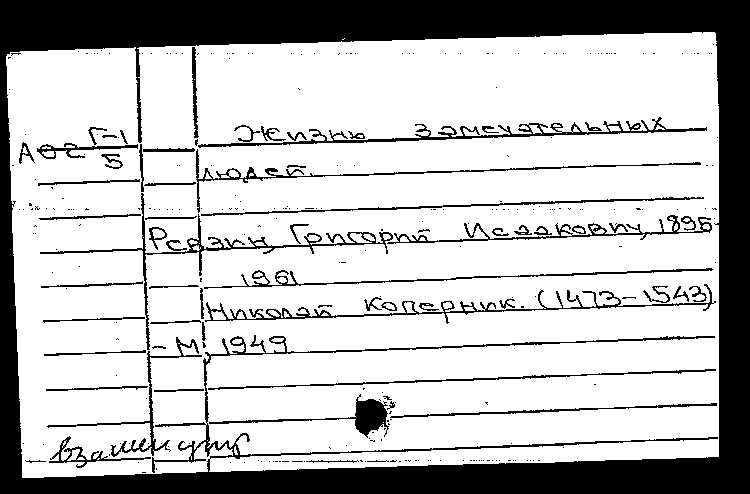 Г-1
АОС 5
Жизнь замечательных
людей.
Ревзин, Григорий Исаакович, 1895-
1961
Николай Коперник. (1473-1543)
- М, 1949